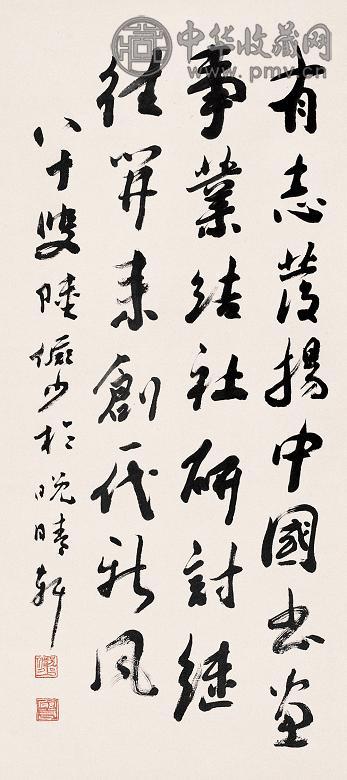 中华收藏网
www.pmv.cn
有志發揚中國书画
事業结社研討继
往开来創一代新风
八十叟陸儼少於晚晴軒